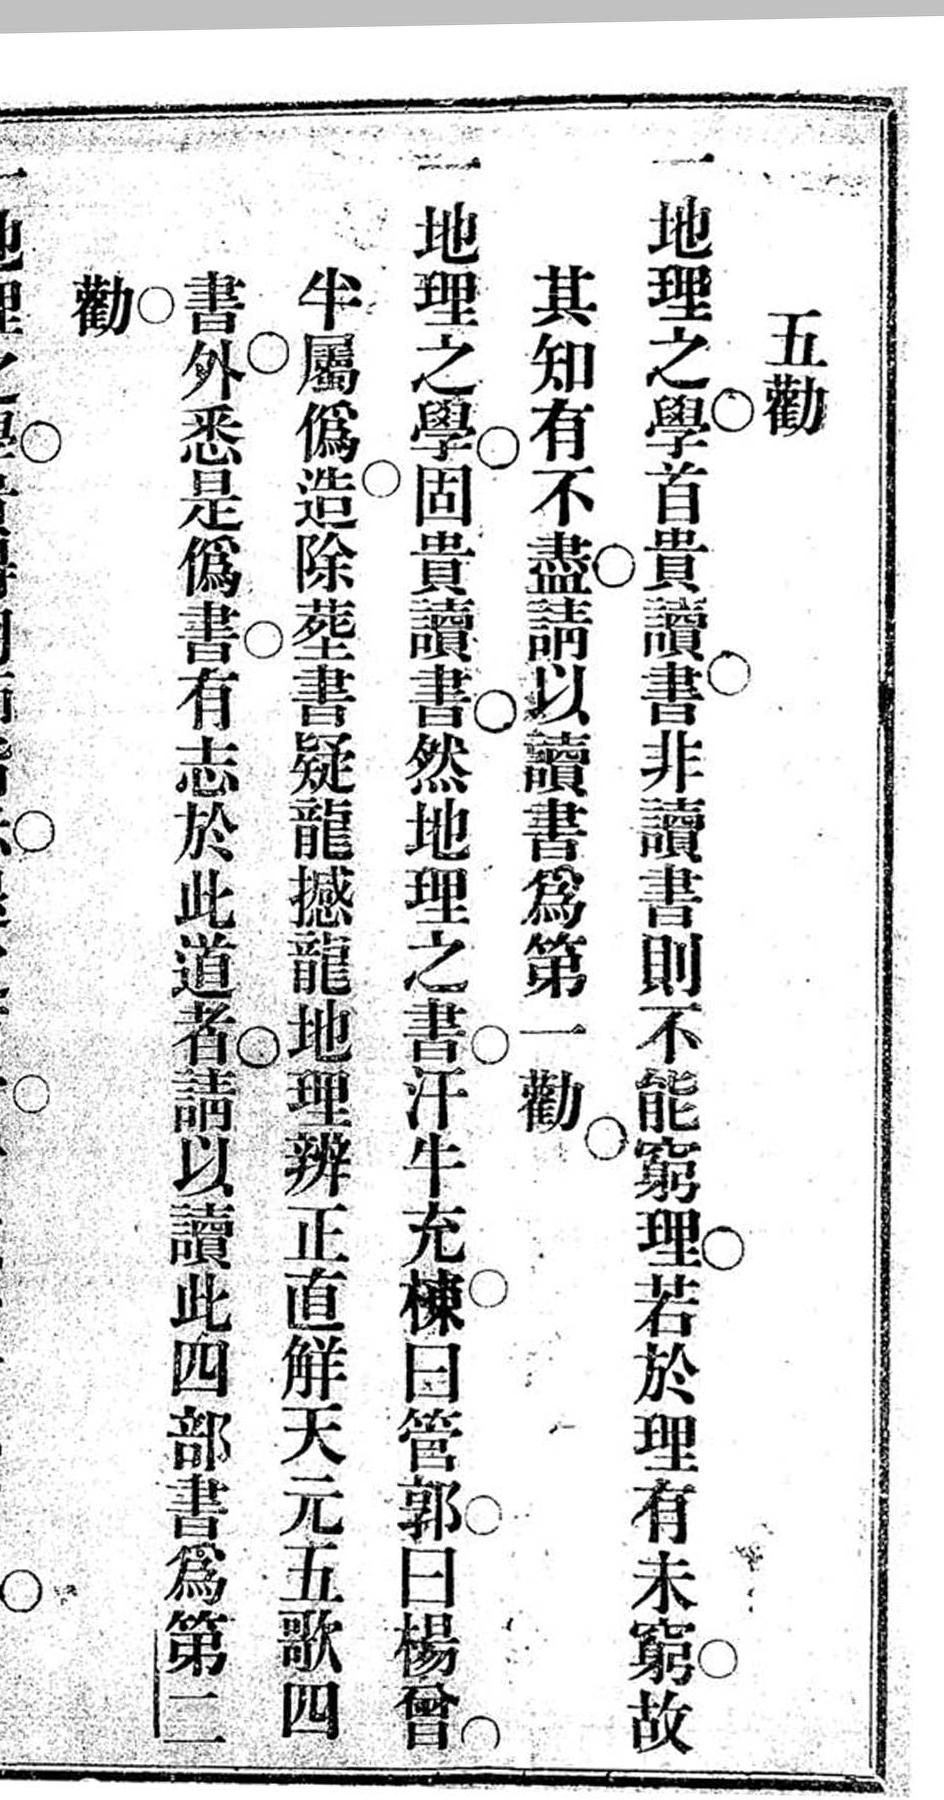 五勸
一地理之學首貴讀書非讀書則不能窮理若於理有未窮故
其知有不盡請以讀書爲第一勸
一地理之學固貴讀書然地理之書汗牛充棟曰管郭曰楊曾
半屬僞造除葬書疑龍撼龍地理辨正直觧天元五歌四
書外悉是僞書有志於此道者請以讀此四部書爲第二
勸
一地理之學貴